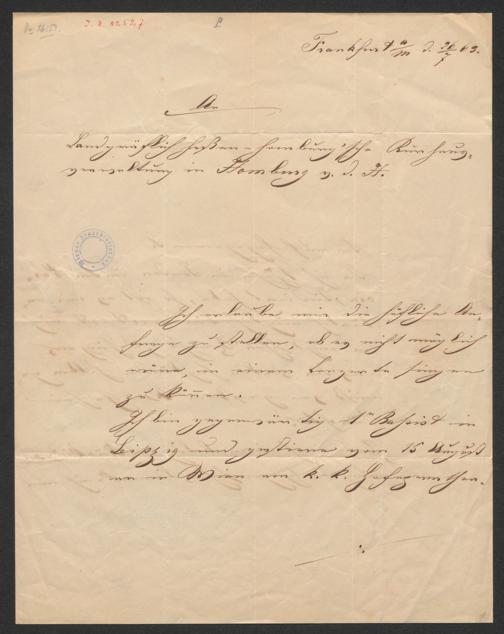 J. N. 42527
Frankfurt a/m d. 26/7 63.
An
Landgräflich Hessen-Homburg'sche Kurhaus-
verwaltung in Homburg v. d. H.
Ich erlaube mir die höfliche An-
frage zu stellen, ob es nicht möglich
wäre, in einem Conzerte singen
zu können.
Ich bin gegenwärtig 1r Bassist in
Leipzig und gastiere vom 15 August
an in Wien am k. k. Hofoperntheater.